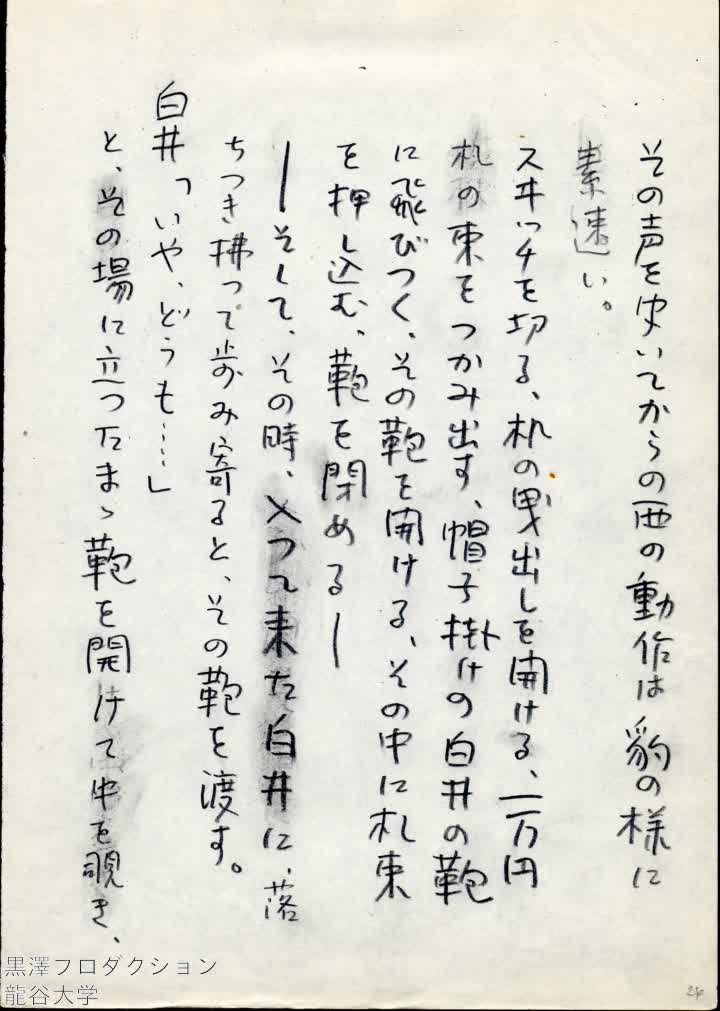 その声を聞いてからの西の動作は豹の様に
素速い。
スヰッチを切る、机の曳出しを開ける、一万円
札の束をつかみ出す、帽子掛けの白井の鞄
に飛びつく、その鞄を開ける、その中に札束
を押し込む、鞄を閉める―
―そして、その時、入って来た白井に、落
ちつき拂って歩み寄ると、その鞄を渡す。
白井「いや、どうも……」
と、その場に立ったまゝ鞄を開けて中を覗き、
黒澤プロダクション
龍谷大学
24